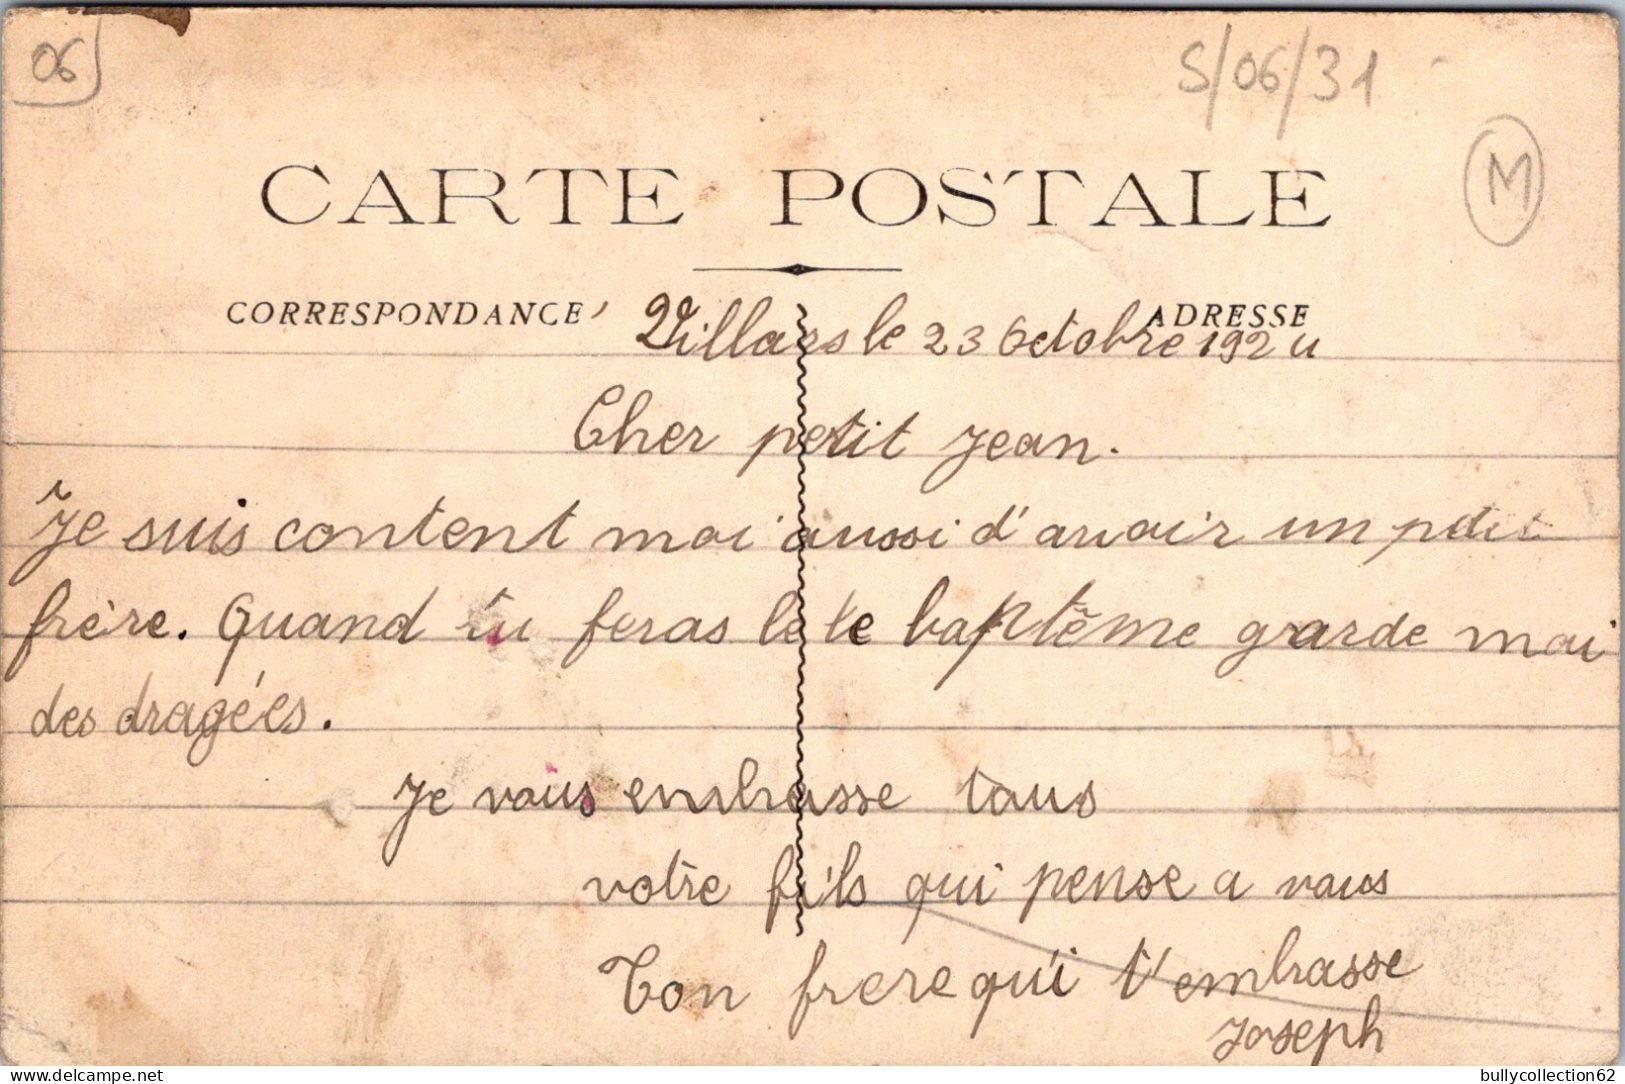 06
S/06/31
M
CARTE POSTALE
CORRESPONDANCE
ADRESSE
Villars le 23 Octobre 192u
Cher petit Jean.
Je suis content moi aussi d'avoir un petit
frère. Quand tu feras le le baptême garde moi
des dragées.
Je vous embrasse tous
votre fils qui pense a vous
Ton frere qui t'embrasse
Joseph
bullycollection62